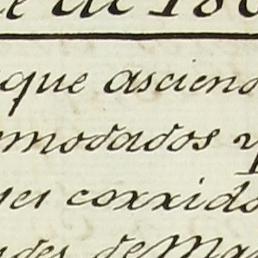 e de 180
que asciend
modados y
es corrido
des, de Ma